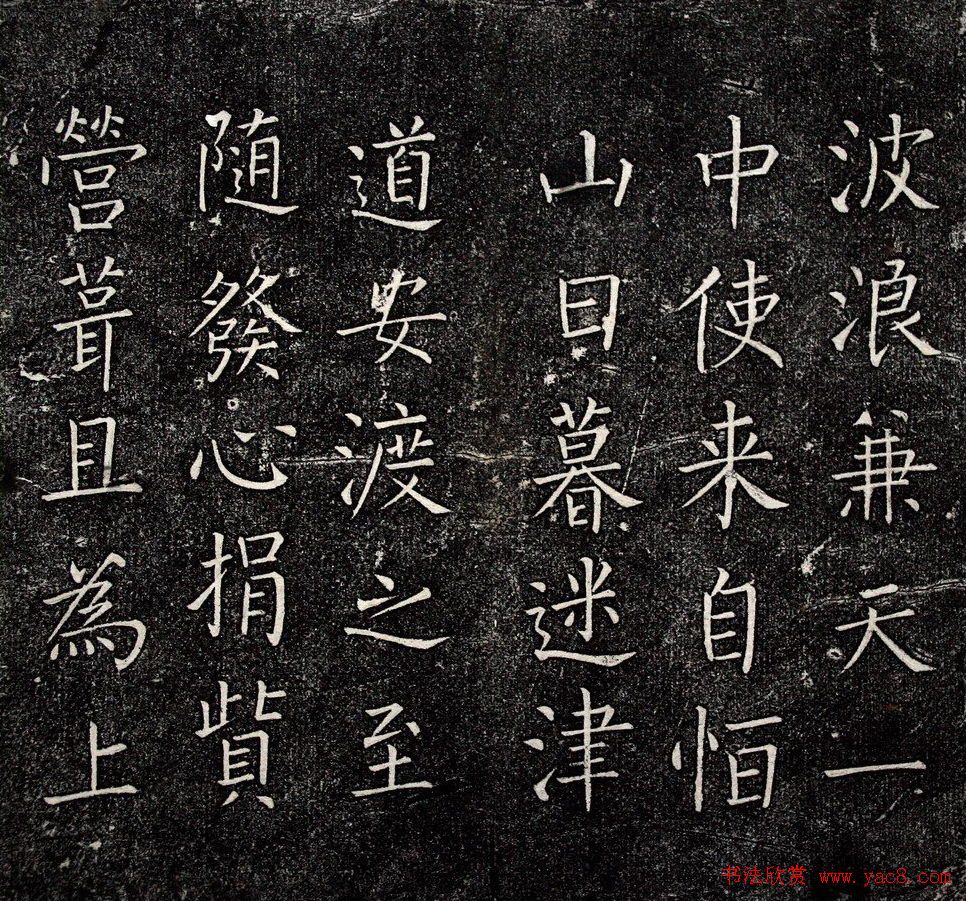 波浪兼天一
中使来自恒
山日暮迷津
道安渡之至
随發心捐貲
營葺且為上
书法欣赏 www.yac8.com